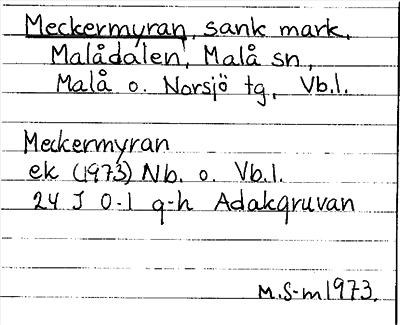 Meckermyran, sank mark,
Malådalen, Malå sn,
Malå o. Norsjö tg, Vb.l.
Meckermyran
ek (1973) Nb. o. Vb.l.
24 J 0-1 g-h Adakgruvan
M.S-m 1973.